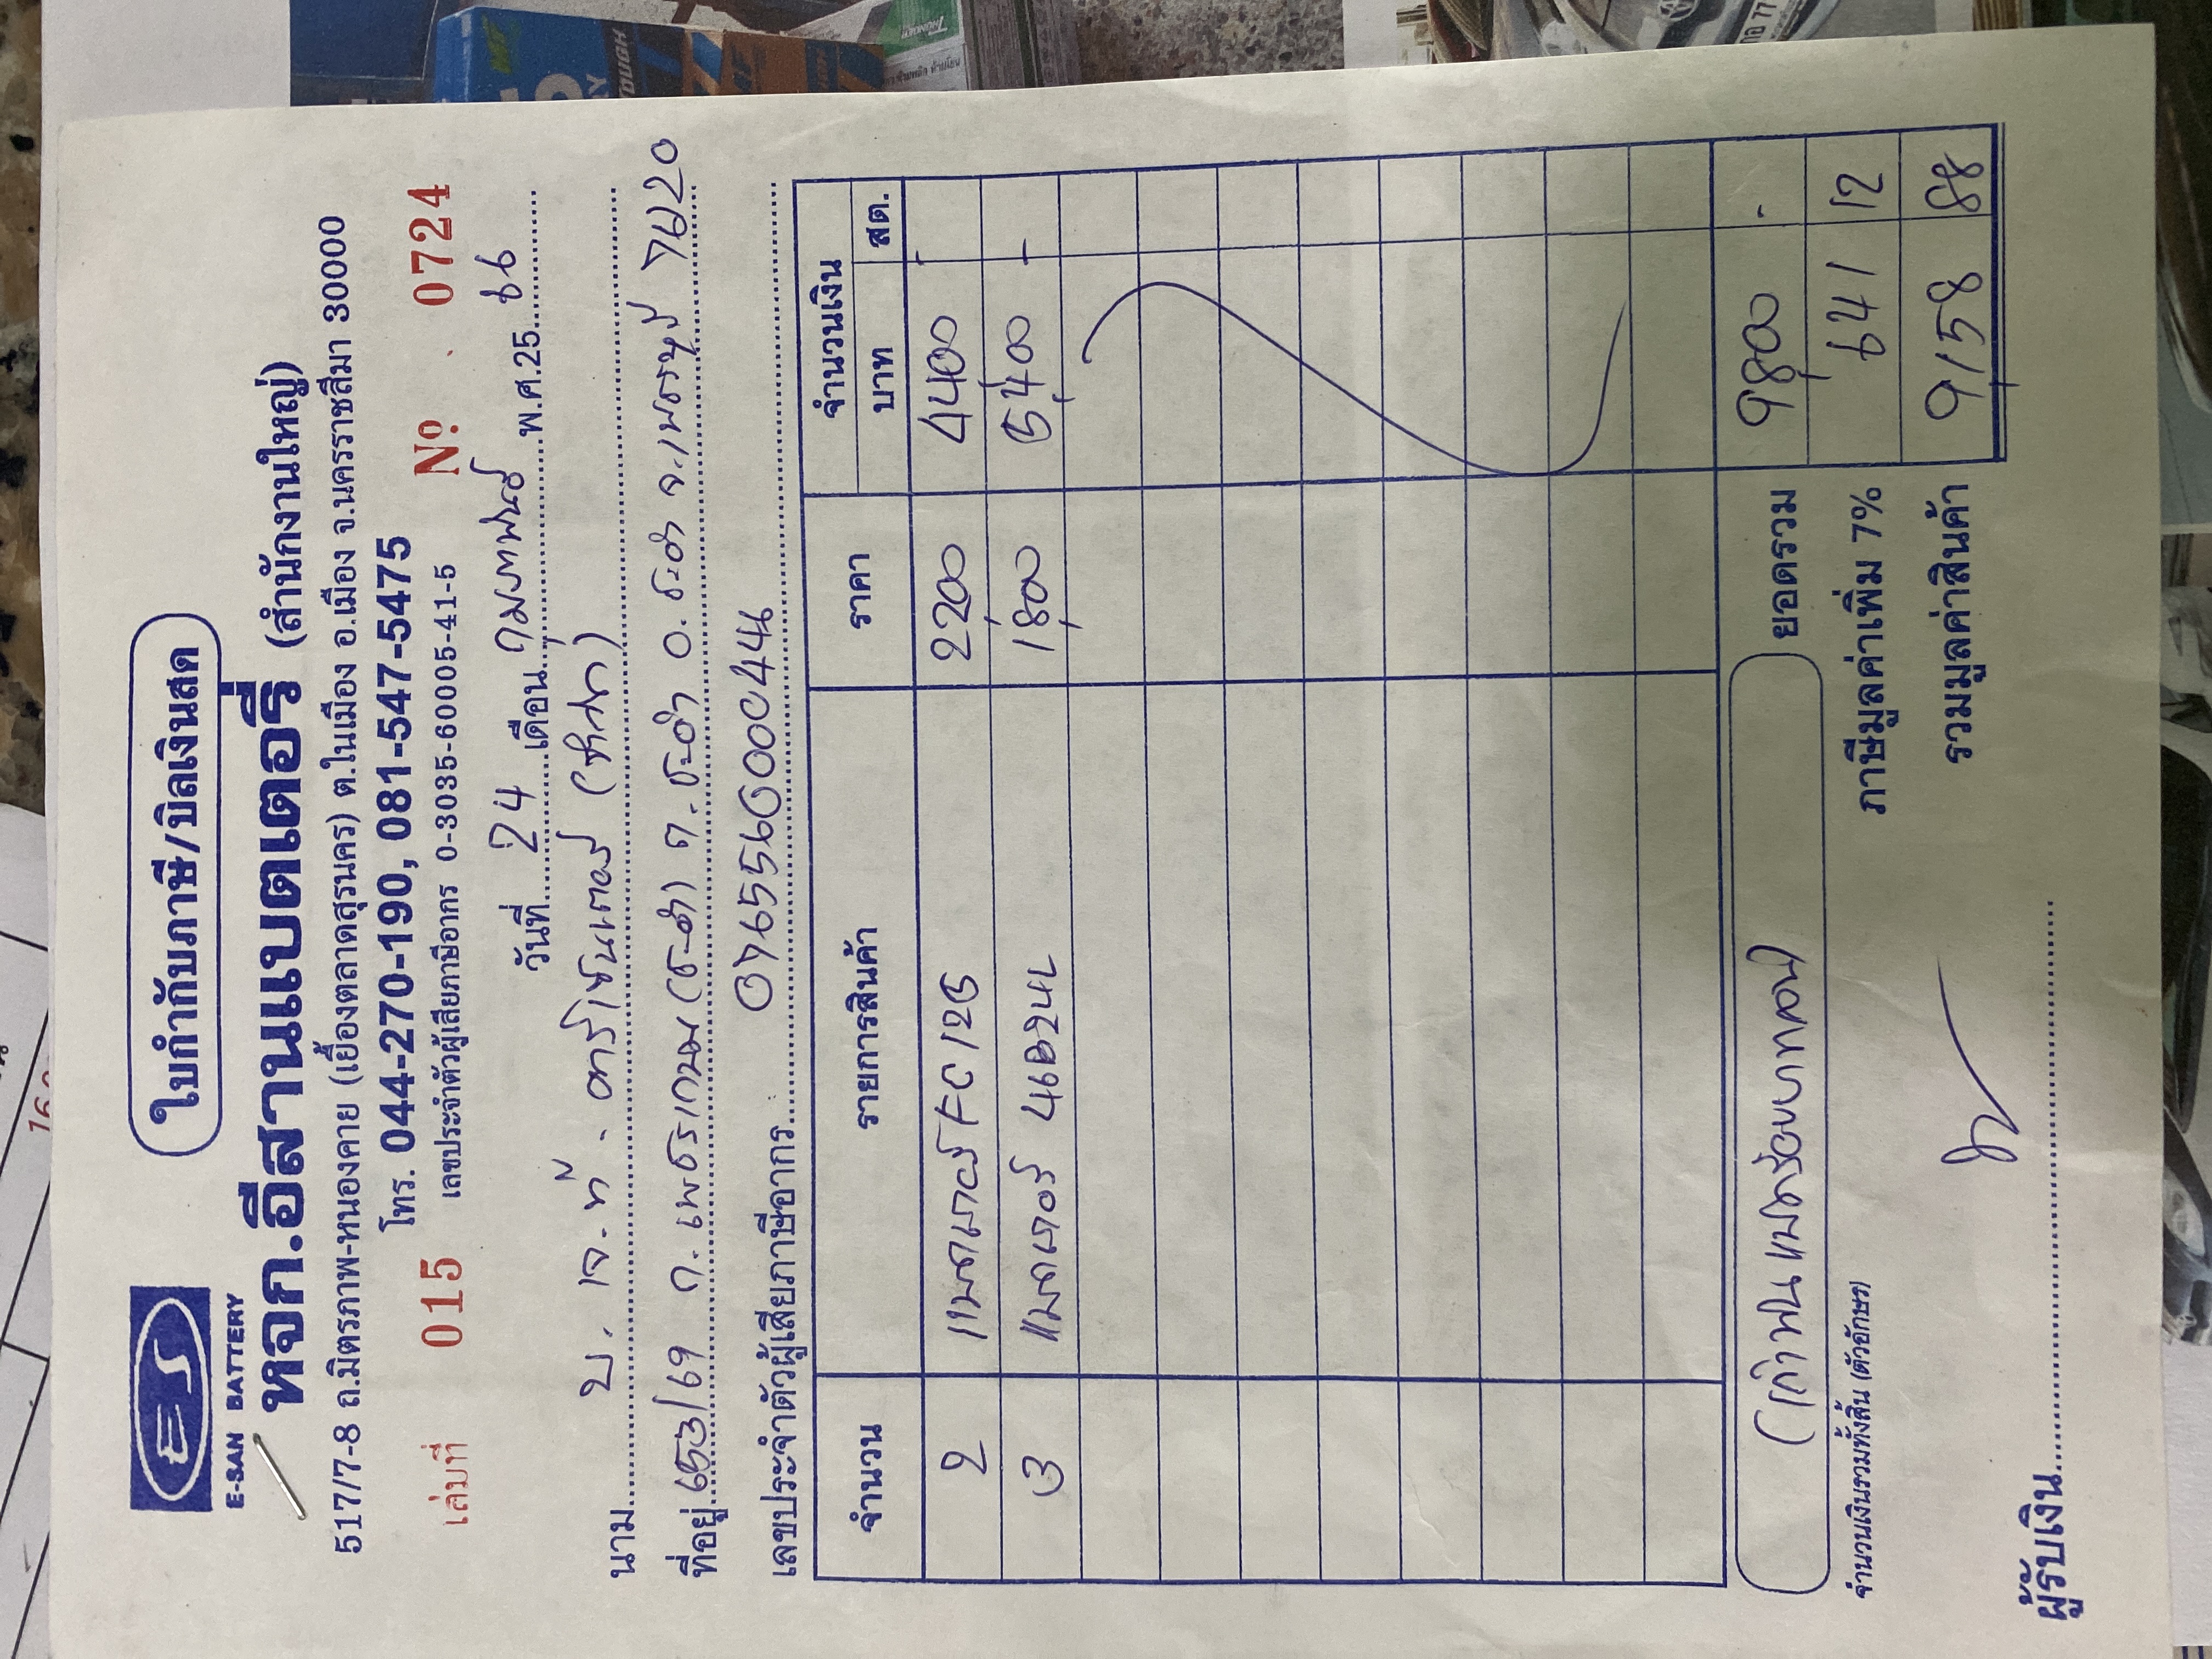 ใบกำกับภาษี/บิลเงินสด
ES
E-SAN BATTERY
หจก.อีสานแบตเตอรี่ (สำนักงานใหญ่)
517/7-8 ถ.มิตรภาพ-หนองคาย (เยื้องตลาดสุรนคร) ต.ในเมือง อ.เมือง จ.นครราชสีมา 30000
โทร. 044-270-190, 081-547-5475
เล่มที่ 015 เลขประจำตัวผู้เสียภาษีอากร 0-3035-60005-41-5 Nº 0724
วันที่ 24 เดือน กุมภาพันธ์ พ.ศ.25 66
นาม บ. เจ.ที.
ที่อยู่ 653/69 ถ.เพชรเกษม(ชะอำ) ต.ชะอำ อ.ชะอำ จ.เพชรบุรี 76120
เลขประจำตัวผู้เสียภาษีอากร
จำนวน รายการสินค้า ราคา จำนวนเงิน
บาท สต.
2 แบตเตอรี่ 2200 4400 -
3 แบตเตอรี่ 46B24L 1,800 5,400 -
ยอดรวม 9,800 -
(เก้าพันแปดร้อยบาทถ้วน)
จำนวนเงินรวมทั้งสิ้น (ตัวอักษร)
ภาษีมูลค่าเพิ่ม 7% 641 12
รวมมูลค่าสินค้า 9,158 88
ผู้รับเงิน